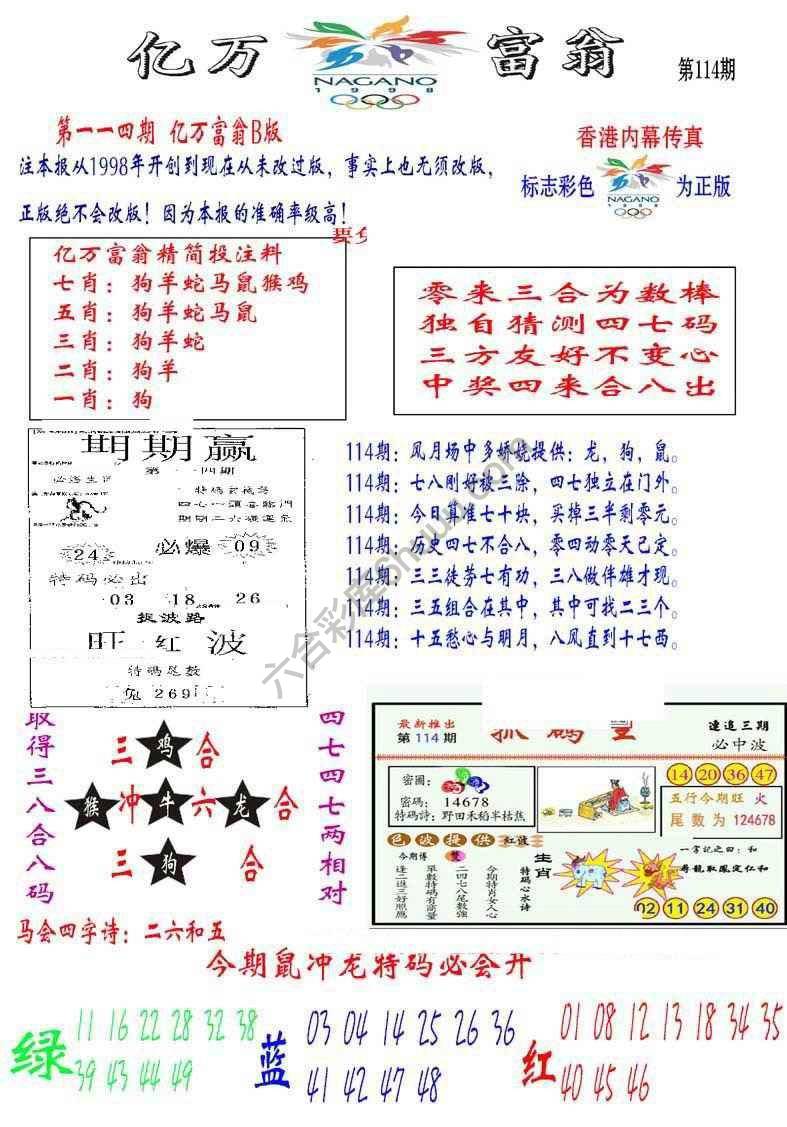 亿万
NAGANO
1998
富翁
第114期
第一一四期 亿万富翁B版
注本报从1998年开创到现在从未改过版，事实上也无须改版，
正版绝不会改版！因为本报的准确率级高！
香港内幕传真
标志彩色
NAGANO
1998
为正版
亿万富翁精简投注料
七肖：狗羊蛇马鼠猴鸡
五肖：狗羊蛇马鼠
三肖：狗羊蛇
二肖：狗羊
一肖：狗
零来三合为数棒
独自猜测四七码
三方友好不变心
中奖四来合八出
期期赢
第一一四期
必逢生肖
24
必爆
09
特码必出
03 18 26
捉波路
旺 红 波
特码尾数
兔 269
114期：风月场中多娇娆提供：龙，狗，鼠。
114期：七八刚好被三除，四七独立在门外。
114期：今日算准七十块，买掉三半剩零元。
114期：历史四七不合八，零四动零天已定。
114期：三三徒劳七有功，三八做伴雄才现。
114期：三五组合在其中，其中可找二三个。
114期：十五愁心与明月，八风直到十七西。
六合彩库
取得三八合八码
三 鸡 合
猴 冲 牛 六 龙 合
三 狗 合
四七四七两相对
最新推出
第114期
连追三期
必中波
密图：
密码：14678
特码诗：野田禾稻半枯焦
14 20 36 47
五行今期旺 火
尾数为 124678
色波提供 红波
今期博
逢二进三好照应
单数特码有商量
二四七八尾数强
今期特肖女人心
特码心水诗
生肖
一字记之曰：和
寻龙取凤定仁和
02 11 24 31 40
马会四字诗：二六和五
今期鼠冲龙特码必会开
绿
11 16 22 28 32 38
39 43 44 49
蓝
03 04 14 25 26 36
41 42 47 48
红
01 08 12 13 18 34 35
40 45 46